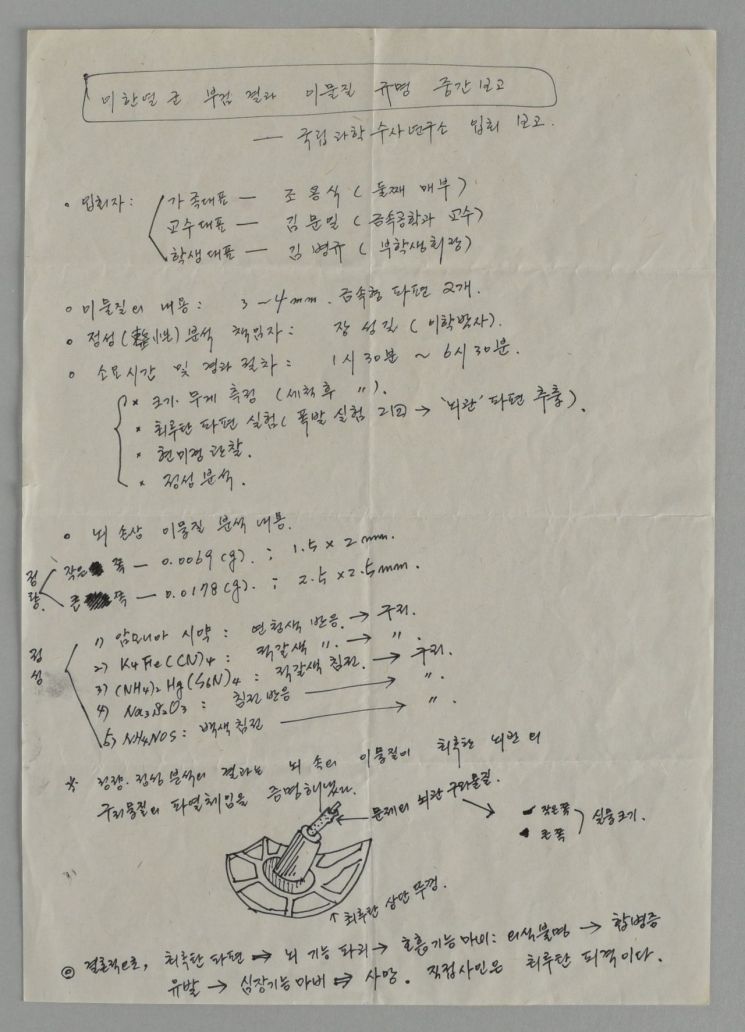 이한열 군 부검 결과 이물질 규명 중간보고
— 국립과학수사연구소 입회 보고.
◦ 입회자: 가족대표 — 조용식 (둘째 매부)
교수대표 — 김문일 (금속공학과 교수)
학생대표 — 김병규 (부학생회장)
◦ 이물질의 내용: 3~4mm. 금속형 파편 2개.
◦ 정성(定性) 분석 책임자: 장성길 (이학박사).
◦ 소요시간 및 경과 절차: 1시 30분 ~ 6시 30분.
* 크기·무게 측정 (세척후 〃).
* 최루탄 파편 실험 (폭발 실험 2回 → '뇌관' 파편 추출).
* 현미경 관찰.
* 정성 분석.
◦ 뇌 손상 이물질 분석 내용.
정량. 작은 쪽 — 0.0069(g). ; 1.5 × 2 mm.
큰 쪽 — 0.0178(g). ; 2.5 × 2.5mm.
정성 1) 암모니아 시약: 연청색 반응. → 구리.
2) K4Fe(CN)4: 적갈색 〃. → 〃.
3) (NH4)2Hg(SN)4: 적갈색 침전. → 구리.
4) Na3S2O3: 침전 반응 → 〃.
5) NH4NOS: 백색 침전 → 〃
* 정량·정성 분석의 결과는 뇌 속의 이물질이 최루탄 뇌관의
구리물질의 파열체임을 증명해냈다.
문제의 뇌관 구리물질. → 작은쪽
큰쪽
실물크기.
↑ 최루탄 상단 뚜껑.
◎ 결론적으로, 최루탄 파편 → 뇌 기능 파괴 → 호흡기능마비: 의식불명 → 합병증
유발 → 심장기능마비 → 사망. 직접사인은 최루탄 피격이다.